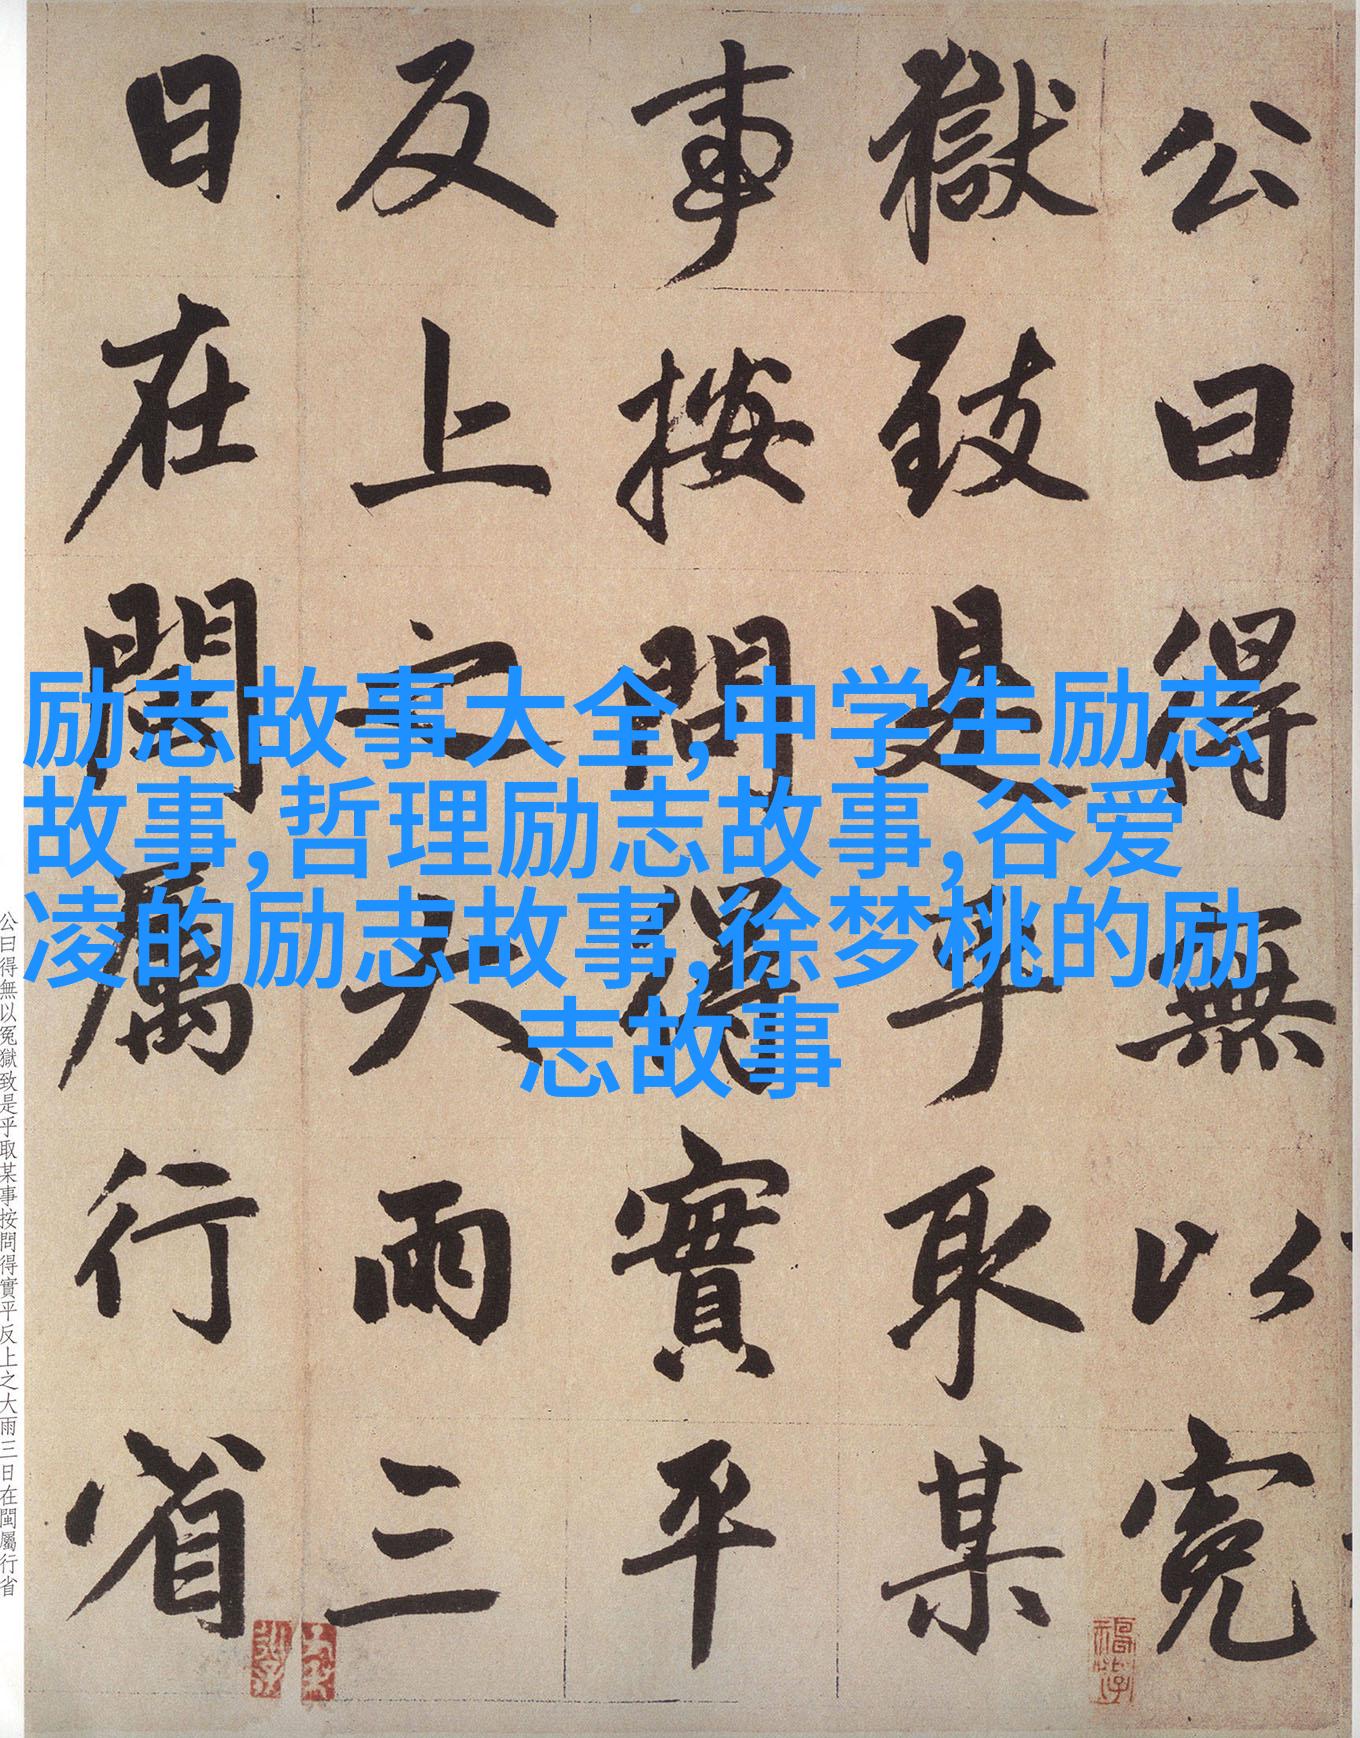 公曰得無以冤
獄致是乎取某
事按問得實平
反上之大雨三
日在閩屬行省
励志故事大全,中学生励志
故事,哲理励志故事,谷爱
凌的励志故事,徐梦桃的励
志故事
公曰得無以冤獄致是乎取某事按問得實平反上之大雨三日在閩屬行省